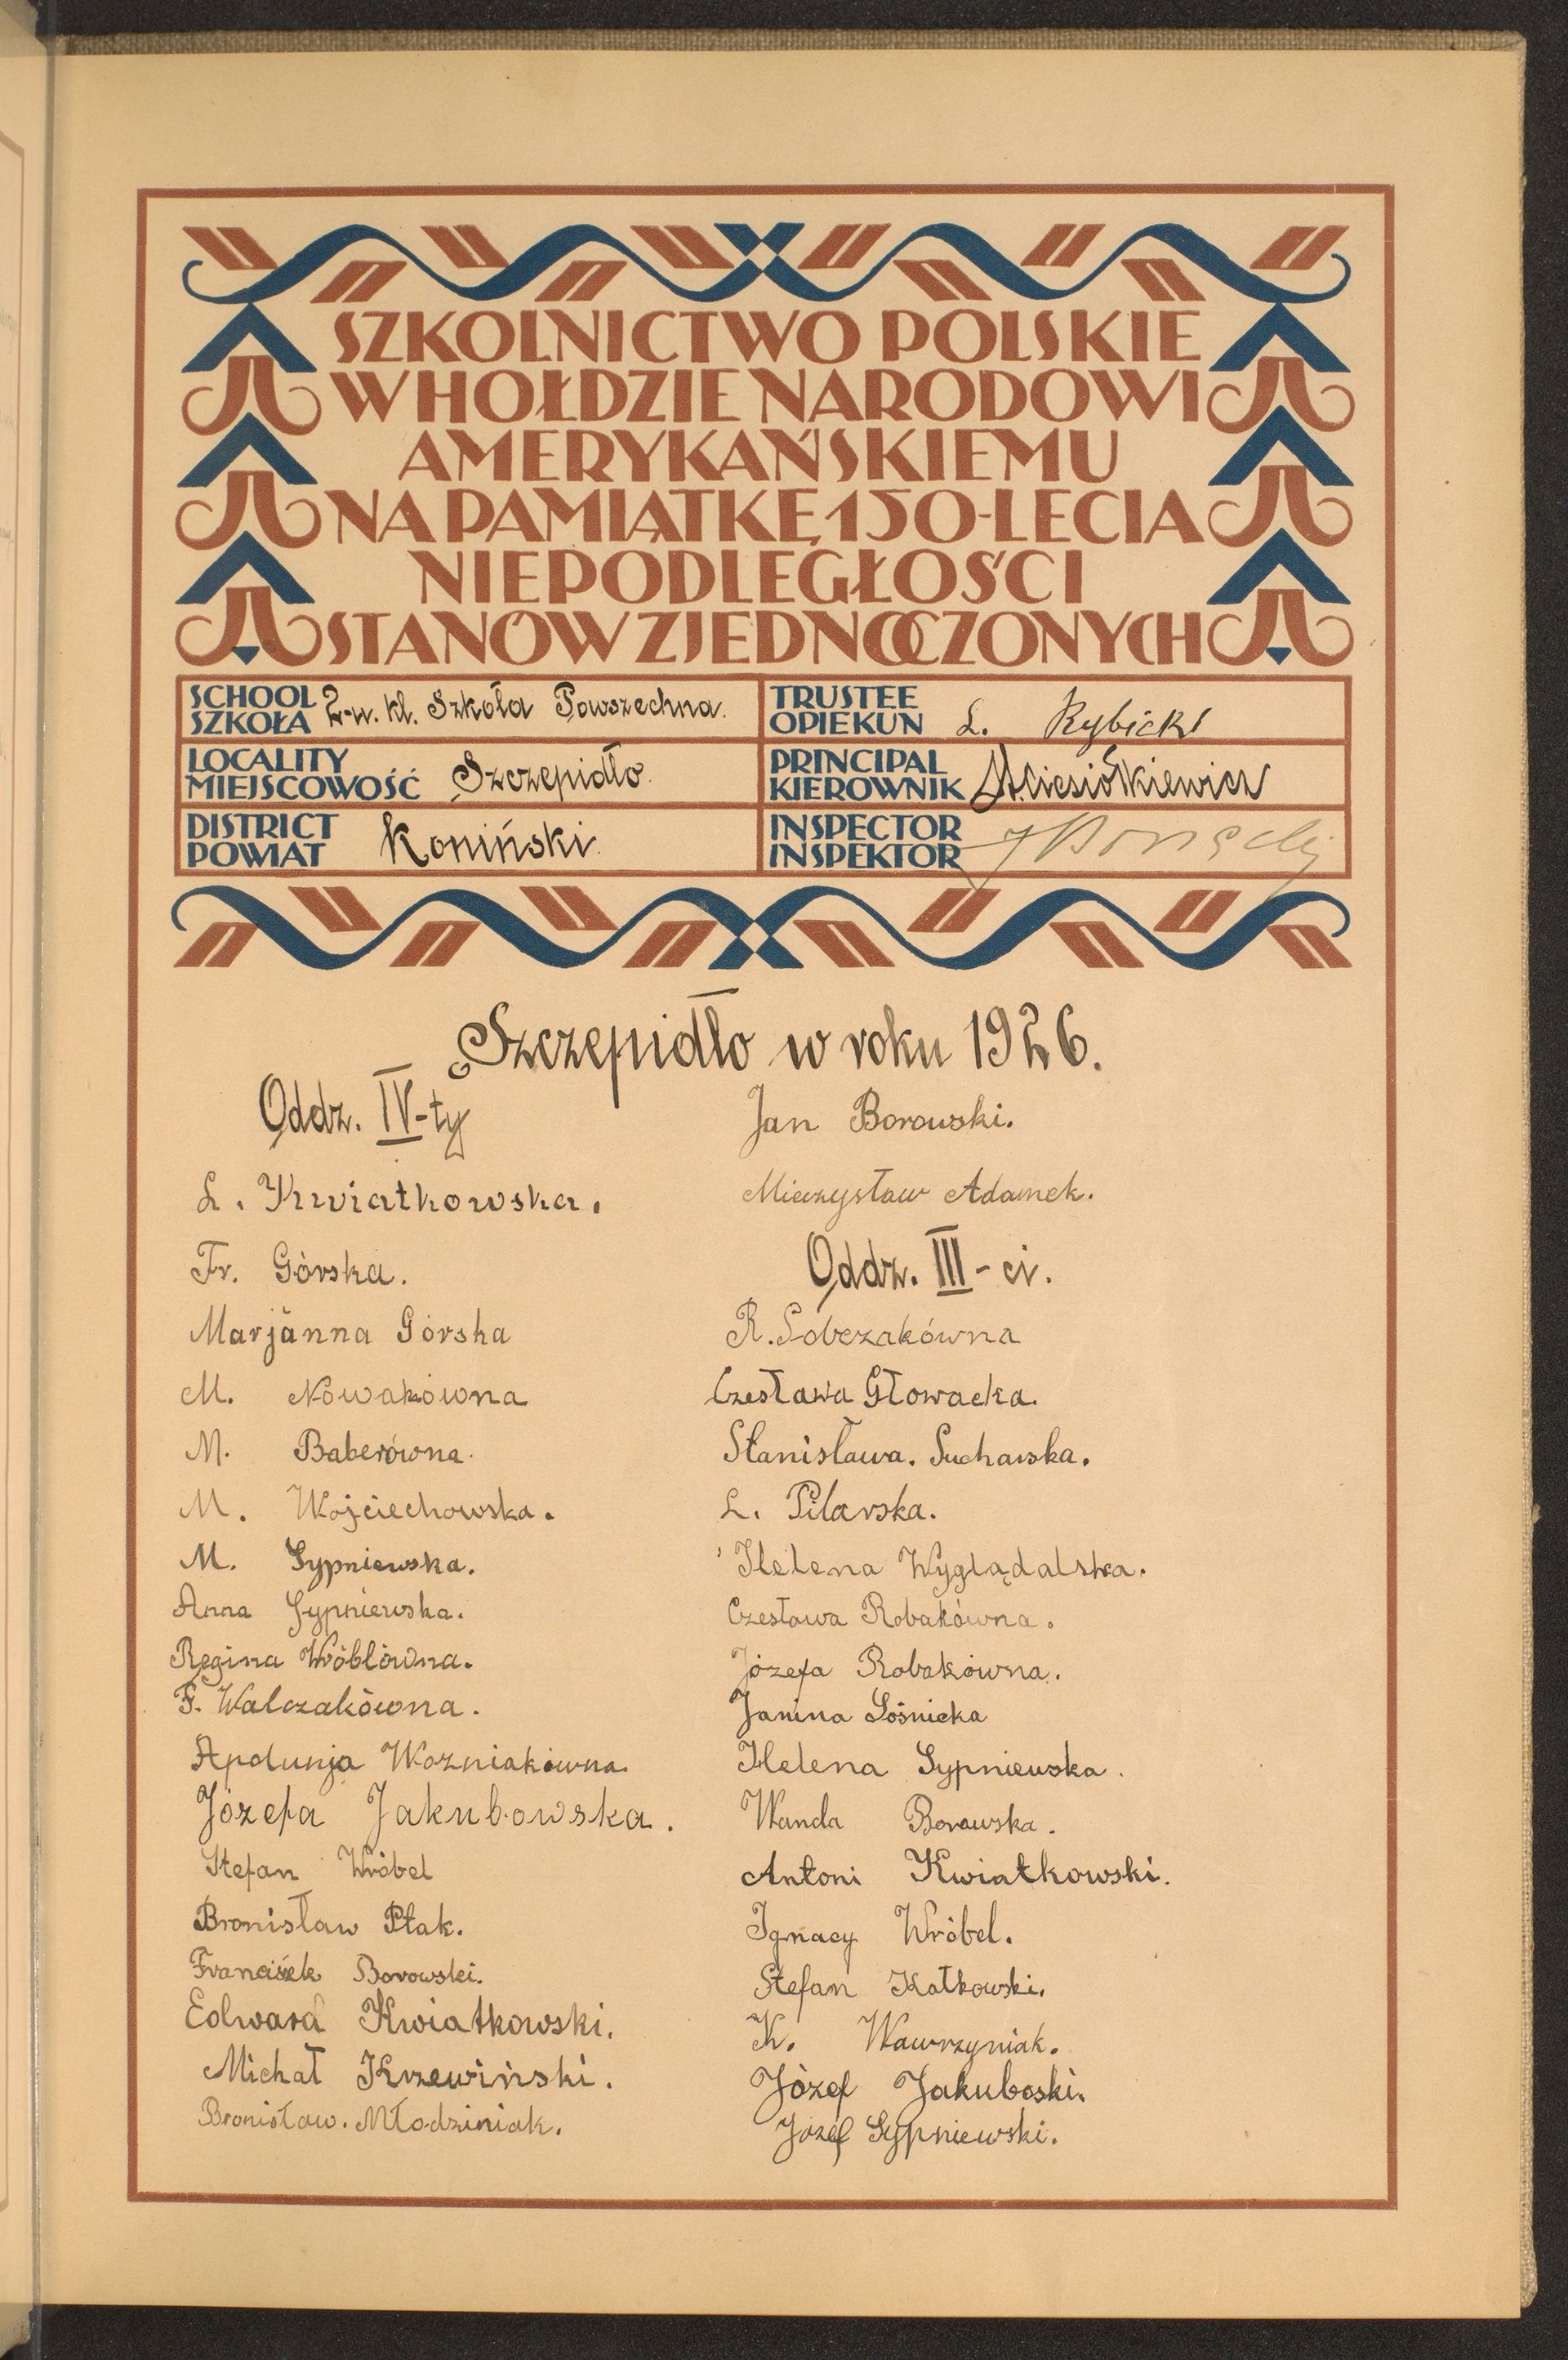 SZKOLNICTWO POLSKIE
W HOŁDZIE NARODOWI
AMERYKAŃSKIEMU
NA PAMIĄTKĘ 150-LECIA
NIEPODLEGŁOŚCI
STANÓW ZJEDNOCZONYCH
SCHOOL
SZKOŁA 2-u. kl. Szkoła Powszechna.
LOCALITY
MIEJSCOWOŚĆ Szczepidło.
DISTRICT
POWIAT Koniński.
TRUSTEE
OPIEKUN L. Rybicki
PRINCIPAL
KIEROWNIK
INSPECTOR
INSPEKTOR
Szczepidło w roku 1926.
Oddz. IV-ty
L. Kwiatkowska.
Fr. Górska.
Marjanna Górska
M. Nowakówna
M. Baberówna.
M. Wojciechowska.
M. Sypniewska.
Anna Sypniewska.
Regina Wróblówna.
F. Walczakówna.
Apolunja Wozniakówna.
Józefa Jakubowska.
Stefan Wróbel
Bronisław Ptak.
Franciszek Borowski.
Edward Kwiatkowski.
Michał Krzewiński.
Bronisław. Młodziniak.
Jan Borowski.
Mieczysław Adamek.
Oddz. III-ci.
R. Sobczakówna
Czesława Głowacka.
Stanisława. Sucharska.
L. Pilarska.
Helena Wyglądalska.
Czesława Robakówna.
Józefa Robakówna.
Janina Sośnicka
Helena Sypniewska.
Wanda Borowska.
Antoni Kwiatkowski.
Ignacy Wróbel.
Stefan Katkowski.
K. Wawrzyniak.
Józef Jakuboski.
Józef Sypniewski.